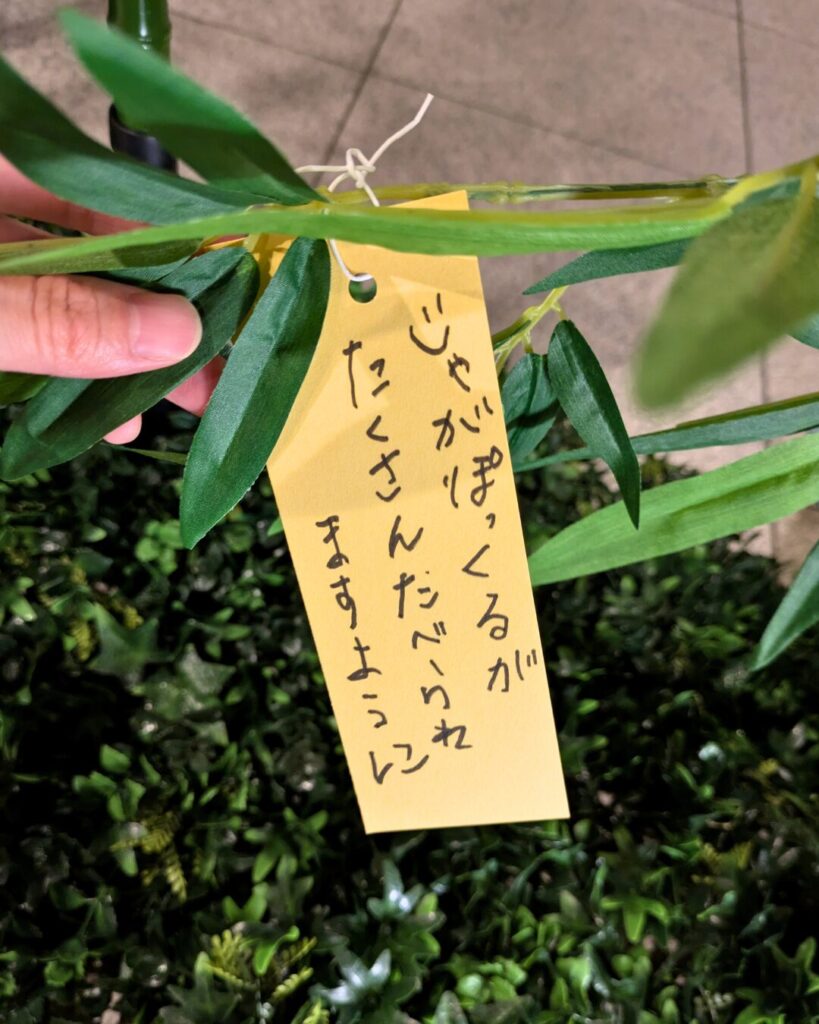 じゃがぽっくるが
たくさんたべられ
ますように